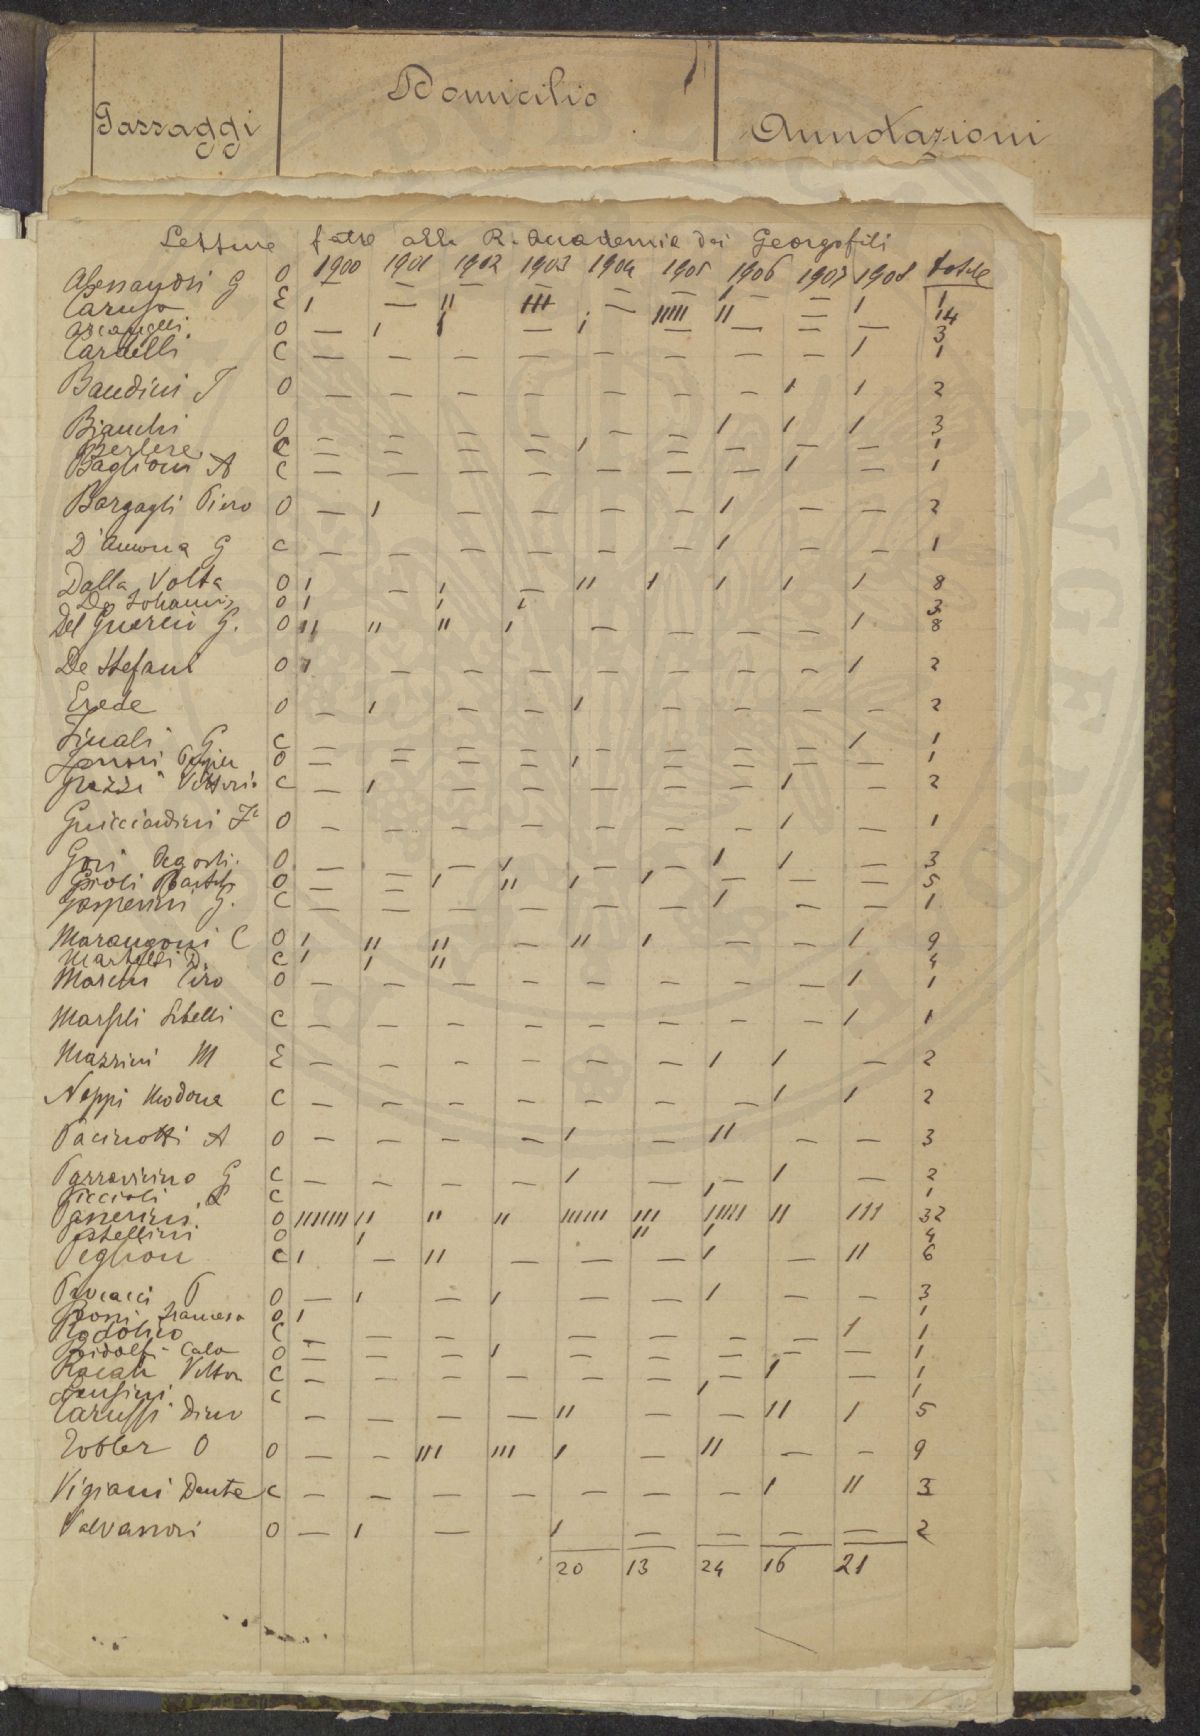 Passaggi Domicilio Annotazioni
Letture fatte alla R. Accademia dei Georgofili
1900 1901 1902 1903 1904 1905 1906 1907 1908 totale
Alessandri G O — — — — — — 1 — — 1
Caruso E 1 — 11 111 — 11111 11 — 1 14
O — 1 1 — 1 — — — — 3
Cardelli C — — — — — — — — 1 1
Bandini P O — — — — — — — 1 1 2
Bianchi O — — — — — — 1 1 1 3
Berlese C — — — — 1 — — — — 1
Baglioni A C — — — — — — — 1 — 1
Bargagli Piero O — 1 — — — — 1 — — 2
D'Ancona G C — — — — — — 1 — — 1
Dalla Volta O 1 — 1 — 11 1 1 1 1 8
De Johannis O 1 1 1 3
Del Guercio G. O 11 11 11 1 — — — — 1 8
De Stefani O 1 — — — — — — — 1 2
Erede O — 1 — — 1 — — — — 2
Finali G C — — — — — — — — 1 1
O — — — — 1 — — — — 1
Grazzi Vittorio C — 1 — — — — — 1 — 2
Guicciardini Fc O — — — — — — — 1 — 1
Gori Degosti. O — — — 1 — — 1 1 — 3
Grioli O — — 1 11 1 1 — — — 5
Gasperini G. C — — — — — — 1 — — 1
Marangoni C O 1 11 11 — 11 1 — — 1 9
Martelli D. C 1 1 11 4
Marchi Ciro O — — — — — — — — 1 1
Marsili Libelli C — — — — — — — — 1 1
Mazzini M E — — — — — — 1 1 — 2
Neppi Modona C — — — — — — — 1 1 2
Pacinotti A O — — — — 1 — 11 — — 3
Parravicino G C — — — — 1 — — 1 — 2
Piccioli L C 1 1
Passerini O 11111111 11 11 11 111111 111 11111 11 111 32
Pestellini O 1 11 1 4
Peglion C 1 — 11 — — — 1 — 11 6
Pucacci P O — 1 — 1 — — 1 — — 3
Rossi Francesco O 1 1
Rodolico C — — — — — — — — 1 1
Ridolfi Carlo O — — — 1 — — — — — 1
Racah Vittor C — — — — — — — 1 — 1
Sensini C 1 1
Taruffi Dino — — — — 11 — — 11 1 5
Tobler O O — — 111 111 1 — 11 — — 9
Vigiani Dante C — — — — — — — 1 11 3
Valvassori O — 1 — 1 — — — — 2
20 13 24 16 21